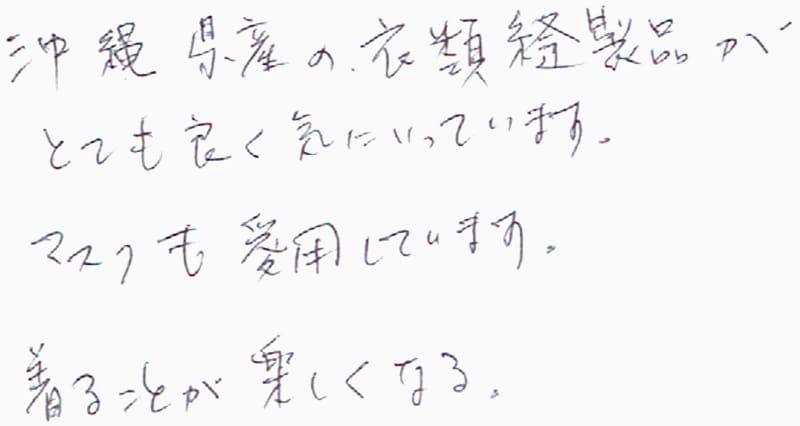 沖縄県産の衣類縫製品が
とても良く気にいっています。
マスクも愛用しています。
着ることが楽しくなる。